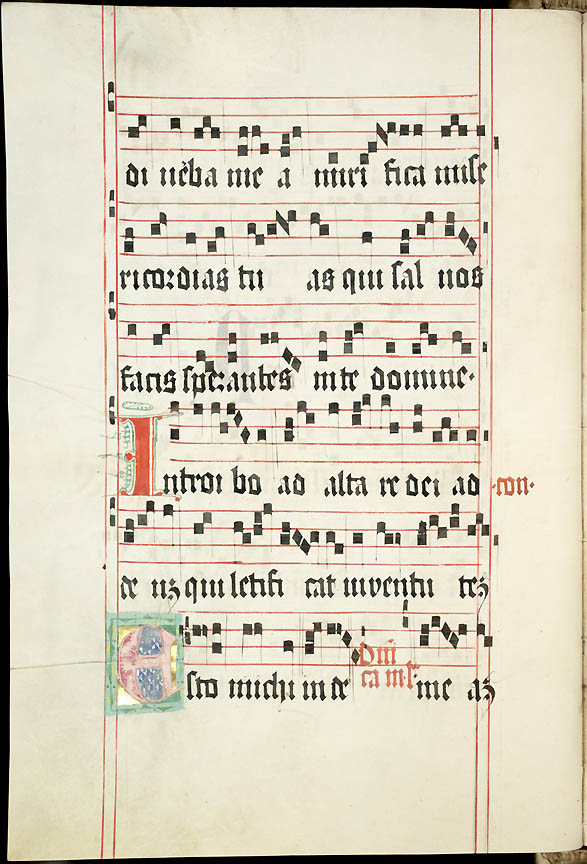 di neba me a miri fica mise
ricordias tu as qui sal nos
facis sperantes in te domine·
Introi bo ad alta re dei ad ·con·
de uʒ qui letifi cat iuventu teʒ
Esto michi in de Dni
ca in l. me aʒ